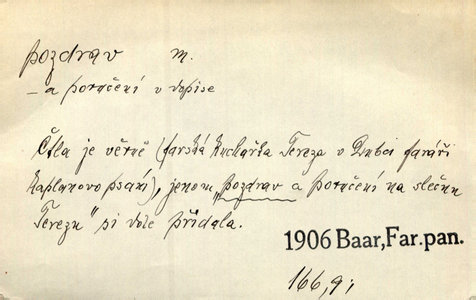 pozdrav m.
– a poručení v dopise
Čtla je věrně (farská kuchařka Tereza v Dubci faráři
kaplanovo psaní), jenom „pozdrav a poručení na slečnu
Terezu" si vole přidala.
1906 Baar, Far. pan.
166,9;